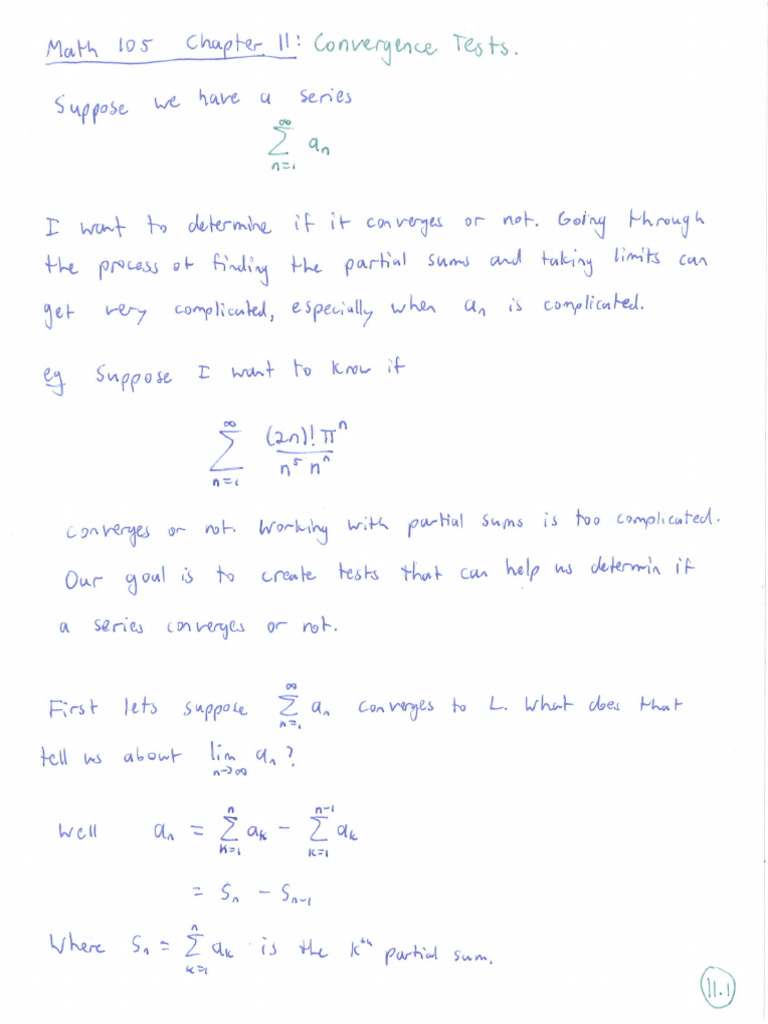 Math 105 Chapter 11: Convergence Tests.
Suppose we have a series
∑_{n=1}^{∞} a_n
I want to determine if it converges or not. Going through
the process of finding the partial sums and taking limits can
get very complicated, especially when a_n is complicated.
eg Suppose I want to know if
∑_{n=1}^{∞} (2n)! π^n / (n^5 n^n)
converges or not. Working with partial sums is too complicated.
Our goal is to create tests that can help us determin if
a series converges or not.
First lets suppose ∑_{n=1}^{∞} a_n converges to L. What does that
tell us about lim_{n→∞} a_n?
Well a_n = ∑_{k=1}^{n} a_k − ∑_{k=1}^{n-1} a_k
= S_n − S_{n-1}
Where S_n = ∑_{k=1}^{n} a_k is the k^{th} partial sum.
11.1